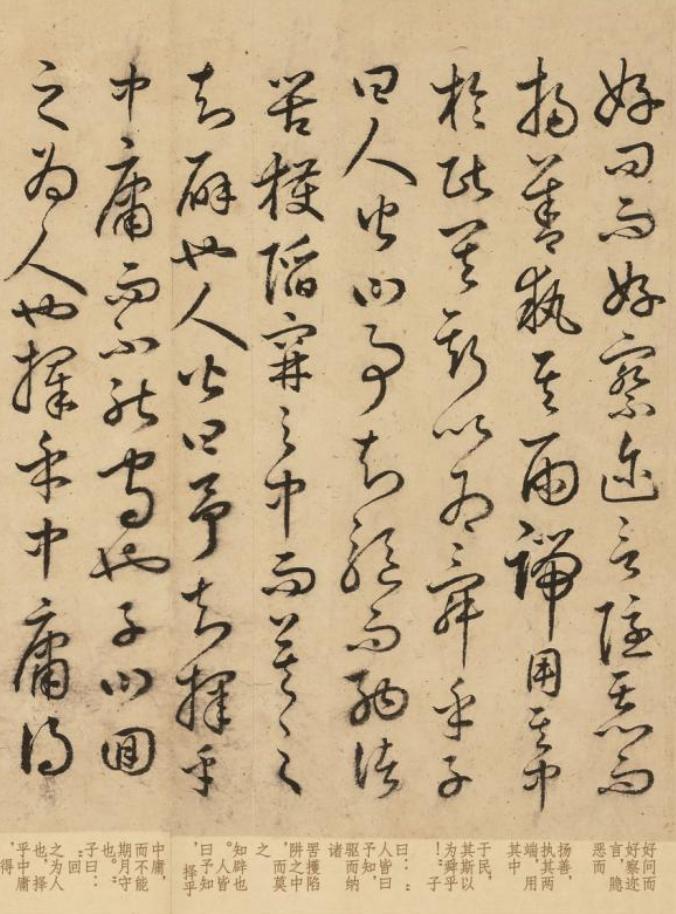 好問而好察邇言隱惡而
揚善執其兩端用其中
於民其斯以為舜乎子
曰人皆曰予知驅而納諸
罟擭陷穽之中而莫之
知辟也人皆曰予知擇乎
中庸而不能守也子曰回
之為人也擇乎中庸得
好问而
好察迩
言，隐
恶而
扬善，
执其两
端，用
其中
于民，
其斯以
为舜乎
！”子
曰：“
人皆曰
予知，
驱而纳
诸
罟擭陷
阱之中
，而莫
之
知辟也
。人皆
曰予知
，择乎
中庸，
而不能
期月守
也。”
子曰：
“回
之为人
也，择
乎中庸
，得